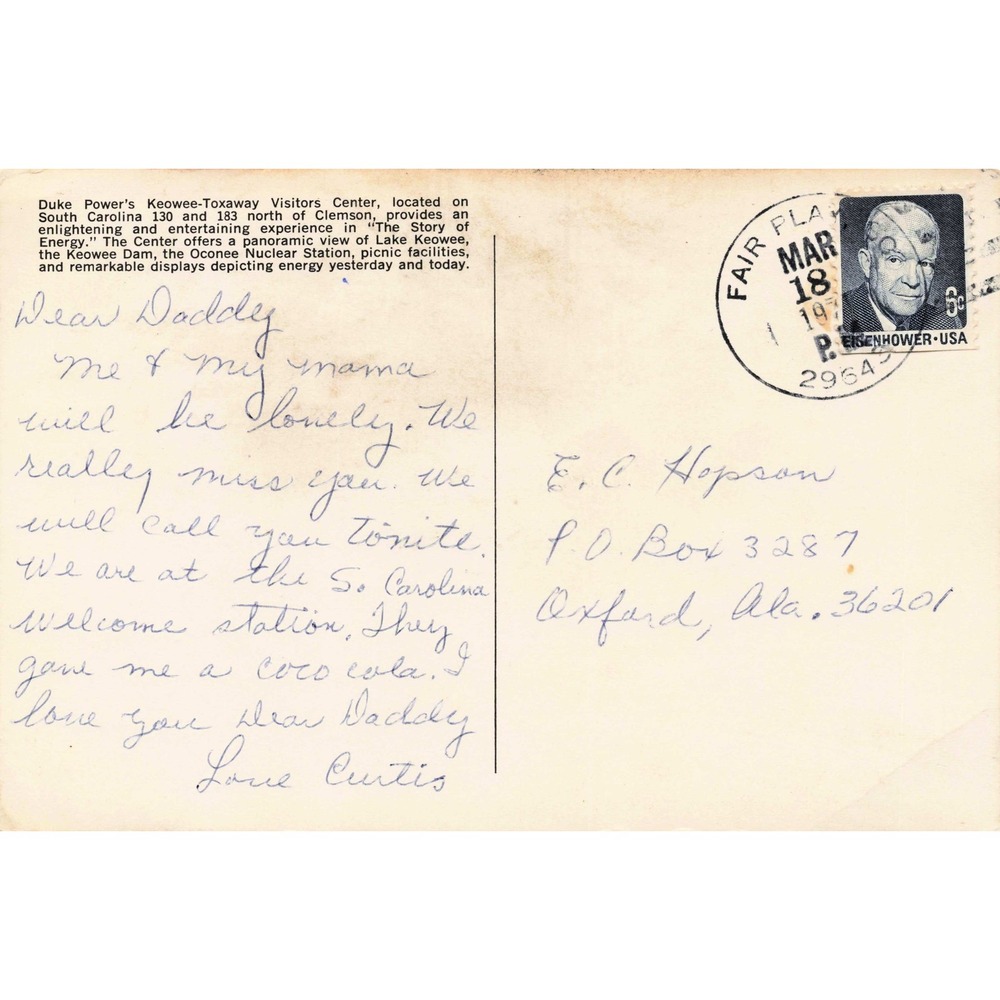 Duke Power's Keowee-Toxaway Visitors Center, located on
South Carolina 130 and 183 north of Clemson, provides an
enlightening and entertaining experience in "The Story of
Energy." The Center offers a panoramic view of Lake Keowee,
the Keowee Dam, the Oconee Nuclear Station, picnic facilities,
and remarkable displays depicting energy yesterday and today.
Dear Daddy
Me & My mama
will be lonely. We
really miss you. We
will call you tonite.
We are at the So Carolina
Welcome station. They
gave me a coco cola. I
love you Dear Daddy
Love Curtis
FAIR PLAY
MAR
18
P.M.
29643
6c
EISENHOWER·USA
E. C. Hopson
P.O. Box 3287
Oxford, Ala. 36201